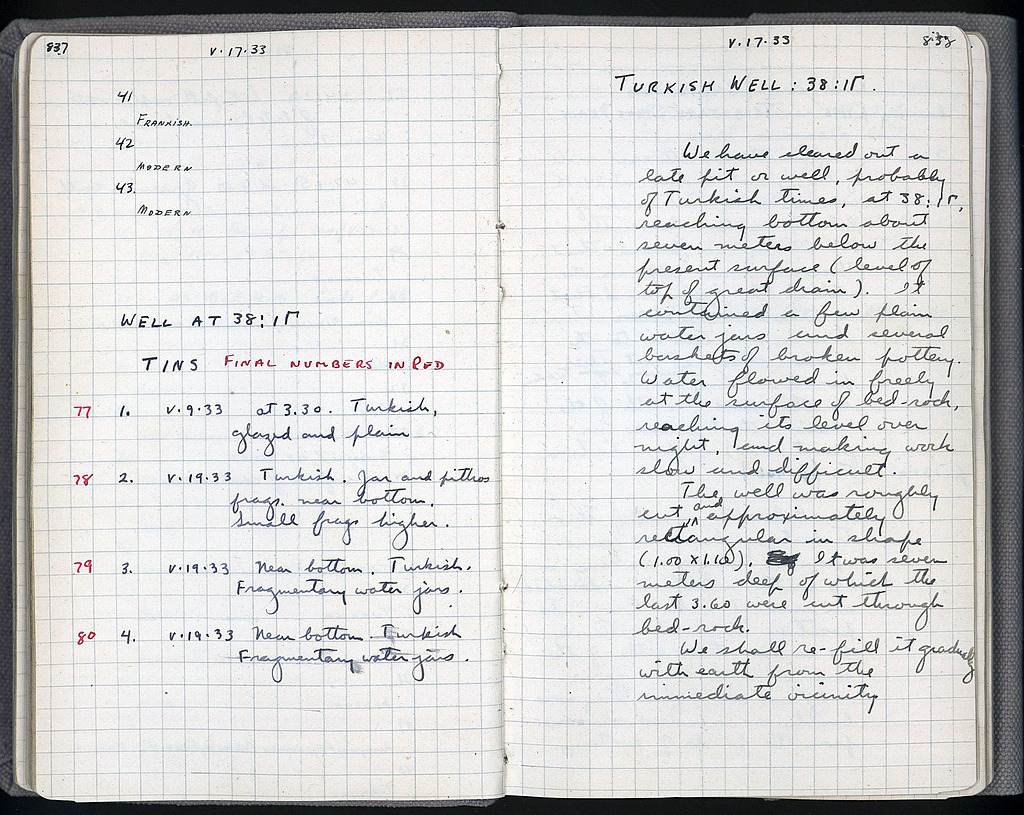 837
V·17·33
41
FRANKISH.
42
MODERN
43.
MODERN
WELL AT 38:1Γ
TINS FINAL NUMBERS IN RED
77 1. V.9.33 at 3.30. Turkish,
glazed and plain
78 2. V.19.33 Turkish. Jar and pithos
frags. near bottom.
Small frags higher.
79 3. V.19.33 Near bottom. Turkish.
Fragmentary water jars.
80 4. V.19.33 Near bottom. Turkish
Fragmentary water jars.
V·17·33
838
TURKISH WELL: 38:1Γ.
We have cleared out a
late pit or well, probably
of Turkish times, at 38:1Γ,
reaching bottom about
seven meters below the
present surface (level of
top of great drain). It
contained a few plain
water jars and several
baskets of broken pottery.
Water flowed in freely
at the surface of bed-rock,
reaching its level over
night, and making work
slow and difficult.
The well was roughly
cut and approximately
rectangular in shape
(1.00 x 1.10). It was seven
meters deep of which the
last 3.60 were cut through
bed-rock.
We shall re-fill it gradually
with earth from the
immediate vicinity